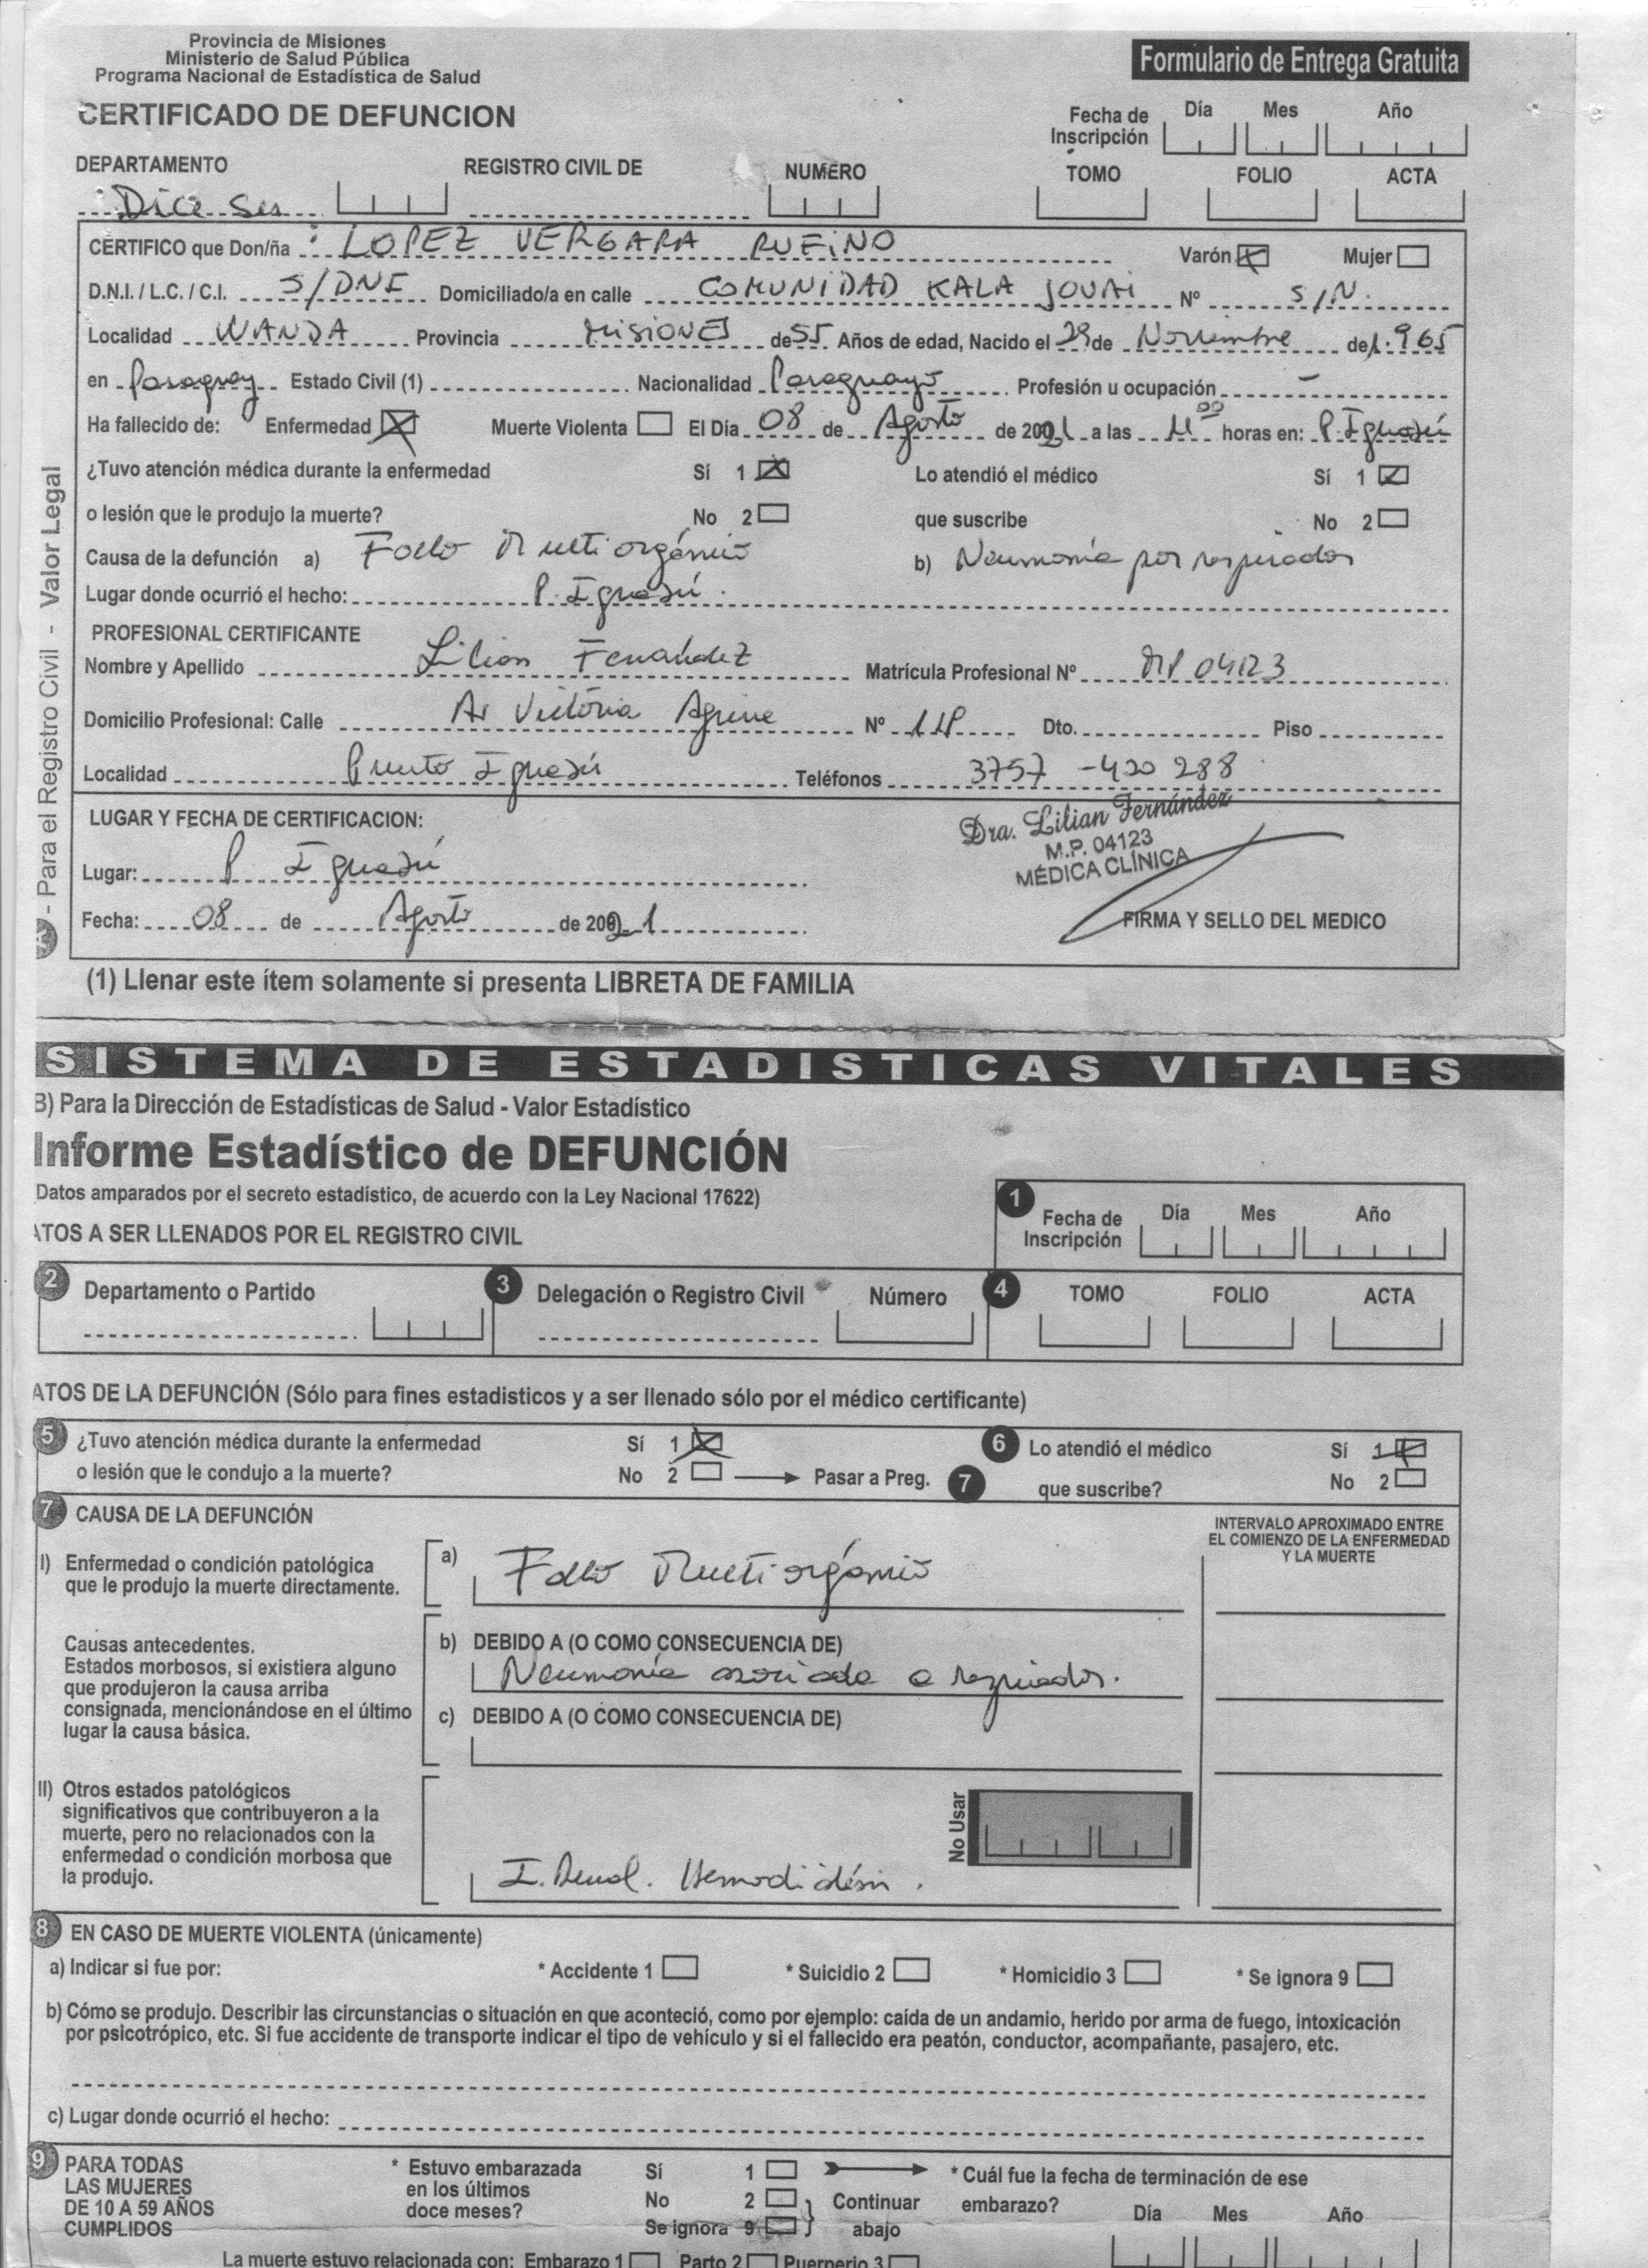 Provincia de Misiones
Ministerio de Salud Pública
Programa Nacional de Estadística de Salud
Formulario de Entrega Gratuita
CERTIFICADO DE DEFUNCION
Fecha de Inscripción Día Mes Año
DEPARTAMENTO REGISTRO CIVIL DE NUMERO TOMO FOLIO ACTA
Dice ser
CERTIFICO que Don/ña : LOPEZ VERGARA RUFINO Varón Mujer
D.N.I. / L.C. / C.I. S/DNI Domiciliado/a en calle COMUNIDAD KALA Nº S/N.
Localidad WANDA Provincia MISIONES de 55 Años de edad, Nacido el 29 de Noviembre de 1.965
en Paraguay Estado Civil (1) Nacionalidad Paraguayo Profesión u ocupación -
Ha fallecido de: Enfermedad Muerte Violenta El Día 08 de Agosto de 2021 a las 11:00 horas en: P. Iguazú
¿Tuvo atención médica durante la enfermedad Sí 1 Lo atendió el médico Sí 1
o lesión que le produjo la muerte? No 2 que suscribe No 2
Causa de la defunción a) Fallo Multiorgánico b) Neumonía por respirador
Lugar donde ocurrió el hecho: P. Iguazú.
PROFESIONAL CERTIFICANTE
Nombre y Apellido Lilian Fernandez Matrícula Profesional Nº MP 04123
Domicilio Profesional: Calle Av Victoria Aguirre Nº Dto. Piso
Localidad Puerto Iguazú Teléfonos 3757 - 420 288
LUGAR Y FECHA DE CERTIFICACION:
Dra. Lilian Fernández
M.P. 04123
MÉDICA CLÍNICA
Lugar: P Iguazú
Fecha: 08 de Agosto de 2021 FIRMA Y SELLO DEL MEDICO
- Para el Registro Civil - Valor Legal
(1) Llenar este ítem solamente si presenta LIBRETA DE FAMILIA
SISTEMA DE ESTADISTICAS VITALES
B) Para la Dirección de Estadísticas de Salud - Valor Estadístico
Informe Estadístico de DEFUNCIÓN
Datos amparados por el secreto estadístico, de acuerdo con la Ley Nacional 17622)
ATOS A SER LLENADOS POR EL REGISTRO CIVIL
1 Fecha de Inscripción Día Mes Año
2 Departamento o Partido 3 Delegación o Registro Civil Número 4 TOMO FOLIO ACTA
ATOS DE LA DEFUNCIÓN (Sólo para fines estadisticos y a ser llenado sólo por el médico certificante)
5 ¿Tuvo atención médica durante la enfermedad Sí 1 6 Lo atendió el médico Sí 1
o lesión que le condujo a la muerte? No 2 Pasar a Preg. 7 que suscribe? No 2
7 CAUSA DE LA DEFUNCIÓN
INTERVALO APROXIMADO ENTRE
EL COMIENZO DE LA ENFERMEDAD
Y LA MUERTE
I) Enfermedad o condición patológica
que le produjo la muerte directamente.
a) Fallo Multiorgánico
Causas antecedentes.
Estados morbosos, si existiera alguno
que produjeron la causa arriba
consignada, mencionándose en el último
lugar la causa básica.
b) DEBIDO A (O COMO CONSECUENCIA DE)
Neumonía asociada a respirador.
c) DEBIDO A (O COMO CONSECUENCIA DE)
II) Otros estados patológicos
significativos que contribuyeron a la
muerte, pero no relacionados con la
enfermedad o condición morbosa que
la produjo.
I. Renal. Hemodiálisis.
No Usar
8 EN CASO DE MUERTE VIOLENTA (únicamente)
a) Indicar si fue por: * Accidente 1 * Suicidio 2 * Homicidio 3 * Se ignora 9
b) Cómo se produjo. Describir las circunstancias o situación en que aconteció, como por ejemplo: caída de un andamio, herido por arma de fuego, intoxicación
por psicotrópico, etc. Si fue accidente de transporte indicar el tipo de vehículo y si el fallecido era peatón, conductor, acompañante, pasajero, etc.
c) Lugar donde ocurrió el hecho:
9 PARA TODAS
LAS MUJERES
DE 10 A 59 AÑOS
CUMPLIDOS
* Estuvo embarazada
en los últimos
doce meses?
Sí 1
No 2
Se ignora 9
Continuar
abajo
* Cuál fue la fecha de terminación de ese
embarazo? Día Mes Año
La muerte estuvo relacionada con: Embarazo 1 Parto 2 Puerperio 3